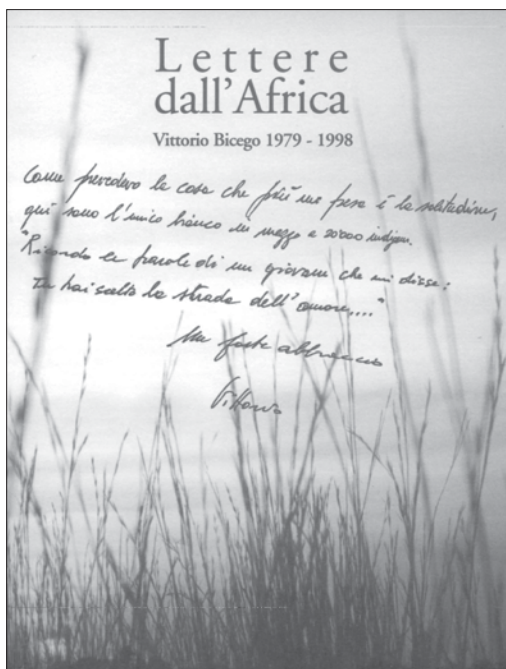 Lettere
dall'Africa
Vittorio Bicego 1979 - 1998
Come prevedevo la cosa che più me pesa è la solitudine,
qui sono l'unico bianco in mezzo a 20000 indigeni.
"Ricordo le parole di un giovane che mi disse:
Tu hai scelto la strada dell'amore...."
Un forte abbraccio
Vittorio